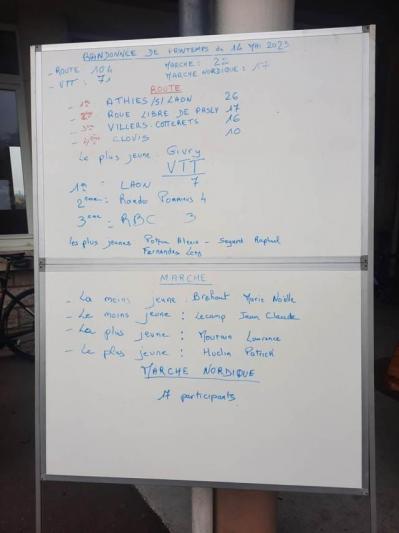 RANDONNEE DE PRINTEMPS du 14 MAI 2023
- ROUTE 104
MARCHE: 22
- VTT : 71
MARCHE NORDIQUE: 17
ROUTE
- 1er ATHIES/S/LAON 26
- 2eme ROUE LIBRE DE PASLY 17
- 3eme VILLERS-COTTERETS 16
- 4eme CLOVIS 10
Le plus jeune: Givry
VTT
1er : LAON 7
2eme : Rando Pommiers 4
3eme : RBC 3
les plus jeunes - Raphael
Fernandes
MARCHE
- La moins jeune: Brehout Marie Noëlle
- Le moins jeune : Lecamp Jean Claude
- La plus jeune : Laurence
- Le plus jeune : Huclin Patrick
MARCHE NORDIQUE
17 participants